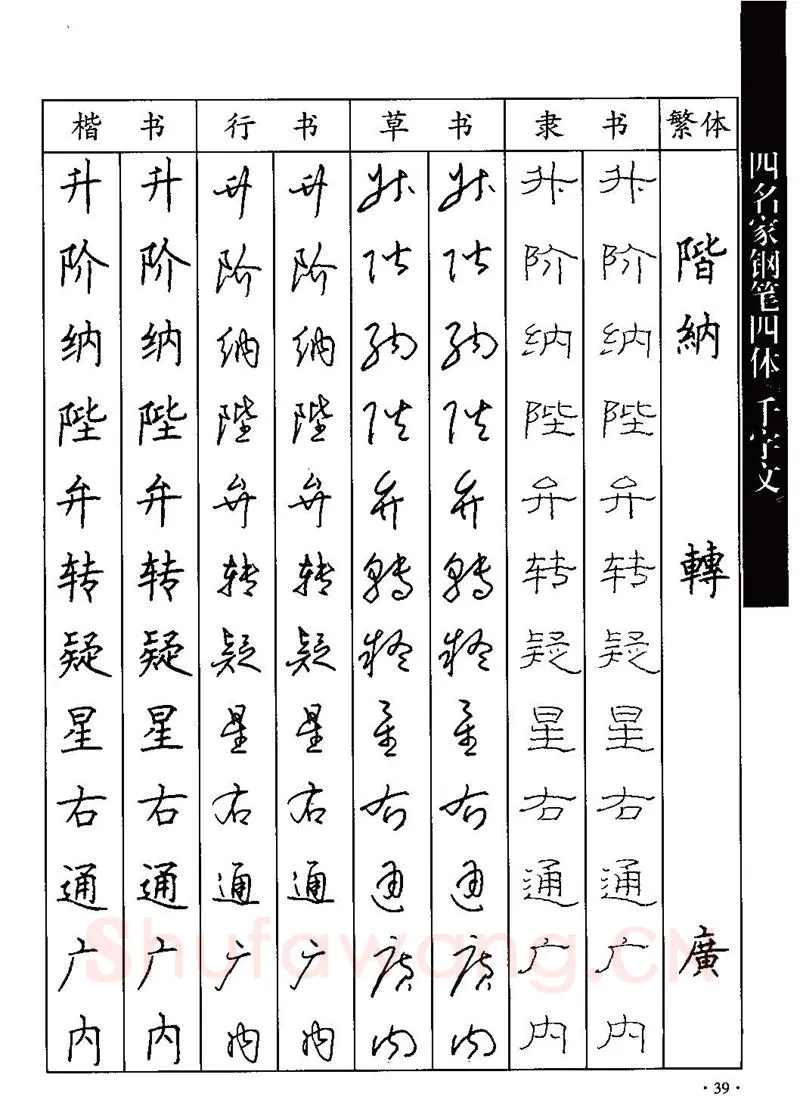 楷 书 行 书 草 书 隶 书 繁体
升 升 升 升 升 升 升 升
阶 阶 阶 阶 阶 阶 阶 阶 階
纳 纳 纳 纳 纳 纳 纳 纳 納
陛 陛 陛 陛 陛 陛 陛 陛
弁 弁 弁 弁 弁 弁 弁 弁
转 转 转 转 轉 轉 转 转 轉
疑 疑 疑 疑 疑 疑 疑 疑
星 星 星 星 星 星 星 星
右 右 右 右 右 右 右 右
通 通 通 通 通 通 通 通
广 广 广 广 廣 廣 广 广 廣
内 内 内 内 内 内 内 内
四名家钢笔四体 千字文
Shufawang.CN
·39·